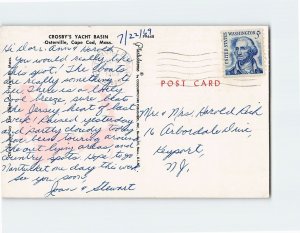 CROSBY'S YACHT BASIN
Osterville, Cape Cod, Mass.
7/22/
Hi Dars: Ann & Harold
You would really like
this spot. The boats
are really something to
see. There is a lovely
cool breeze, sure beats
the Jersey heat of last
week! Rained yesterday
and partly cloudy today
have been touring around
the out lying areas, and
country spots. Hope to go
Nantucket one day this week.
See you soon,
Joan & Stewart
POST CARD
UNITED STATES
WASHINGTON
5¢
Mr & Mrs. Harold Reid
16 Arbordale Drive
Keyport,
N.J.